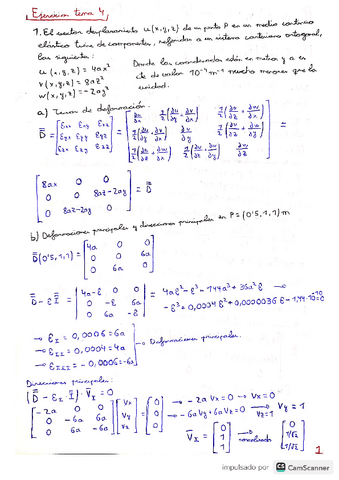 Ejercicios tema 4
1. El vector desplazamiento u(x,y,z) de un punto P en un medio continuo
elástico tiene de componentes, referidas a un sistema cartesiano ortogonal,
las siguientes:
u(x,y,z) = 4ax²
v(x,y,z) = 8az²
w(x,y,z) = -2ay²
Donde las coordenadas están en metros y a es
cte de valor 10⁻⁴ m⁻¹ mucho menores que la
unidad.
a) Tensor de deformación.
D = [εxx εxy εxz; εxy εyy εyz; εzx εzy εzz] = [∂u/∂x 1/2(∂u/∂y + ∂v/∂x) 1/2(∂u/∂z + ∂w/∂x); 1/2(∂u/∂y + ∂v/∂x) ∂v/∂y 1/2(∂v/∂z + ∂w/∂y); 1/2(∂u/∂z + ∂w/∂x) 1/2(∂v/∂z + ∂w/∂y) ∂w/∂z] =
[8ax 0 0; 0 0 8az-2ay; 0 8az-2ay 0] = D
b) Deformaciones principales y direcciones principales en P=(0'5,1,1)m
D(0'5,1,1) = [4a 0 0; 0 0 6a; 0 6a 0]
D - εI = [4a-ε 0 0; 0 -ε 6a; 0 6a -ε] = 4aε² - ε³ - 144a³ + 36a²ε →
-ε³ + 0,0004ε² + 0,00000036ε - 1,44·10⁻¹⁰ = 0
→ εI = 0,0006 = 6a
→ εII = 0,0004 = 4a
→ εIII = -0,0006 = -6a
→ Deformaciones principales.
Direcciones principales:
(D - εI·I)·VI = 0
[-2a 0 0; 0 -6a 6a; 0 6a -6a] [Vx; Vy; Vz] = [0; 0; 0] → -2aVx = 0 → Vx = 0
→ -6aVy + 6aVz = 0 → Vy=1 Vz = 1
VI = [0; 1; 1] → normalizado [0; 1/√2; 1/√2]
1
impulsado por CS CamScanner